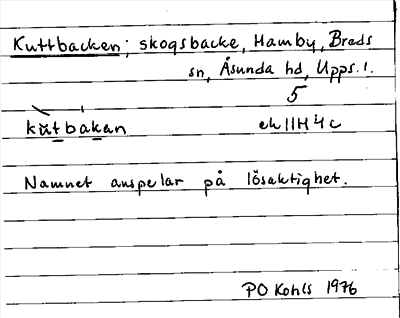 Kuttbacken; skogsbacke, Hamby, Breds
sn, Åsunda hd, Upps. l.
5
kŭtbakan ek 11H4c
Namnet anspelar på lösaktighet.
PO Kohls 1976